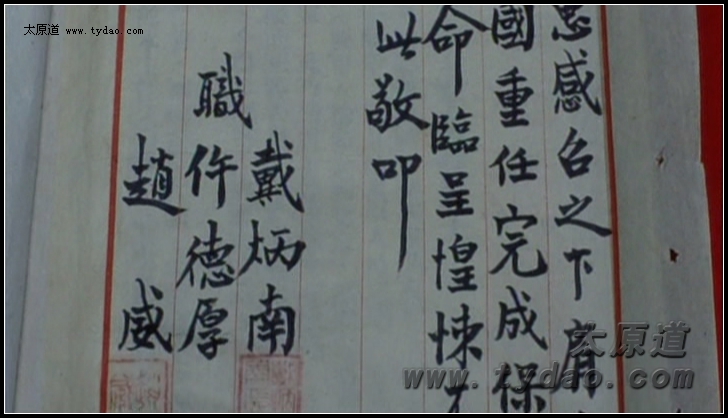 太原道 www.tydao.com
感召之下肩
國重任完成保
命臨呈惶悚不
此敬叩
戴炳南
職仵德厚
趙威
太原道
www.tydao.com